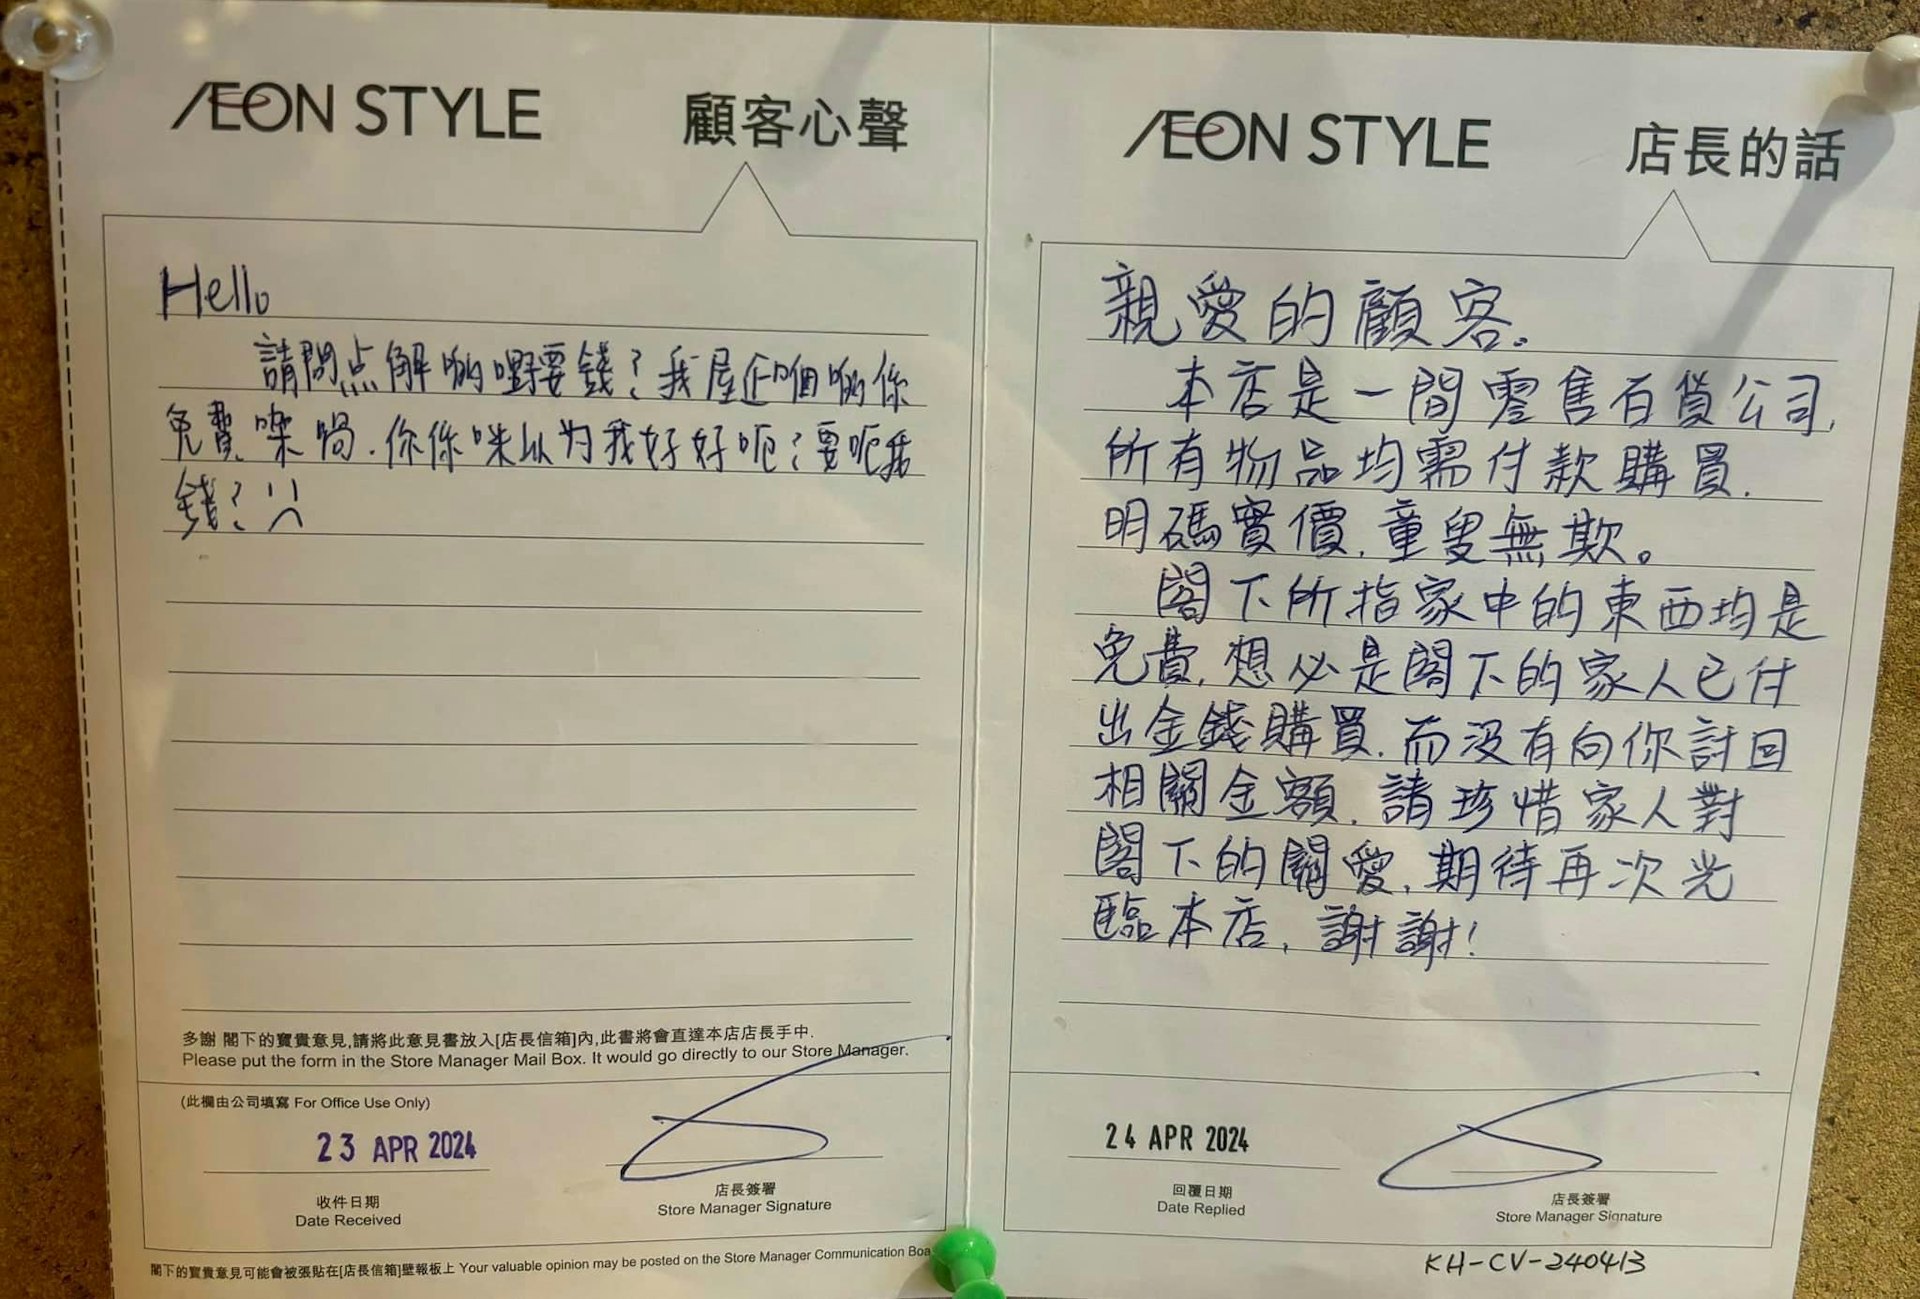 ÆON STYLE 顧客心聲
Hello
請問点解啲嘢要錢？我屋企啲嘢係
免費㗎喎．你係咪以为我好好呃？要呃我
錢？:(
多謝 閣下的寶貴意見,請將此意見書放入[店長信箱]內,此書將會直達本店店長手中.
Please put the form in the Store Manager Mail Box. It would go directly to our Store Manager.
(此欄由公司填寫 For Office Use Only)
23 APR 2024
收件日期
Date Received
店長簽署
Store Manager Signature
閣下的寶貴意見可能會被張貼在[店長信箱]壁報板上 Your valuable opinion may be posted on the Store Manager Communication Boa
ÆON STYLE 店長的話
親愛的顧客。
本店是一間零售百貨公司,
所有物品均需付款購買.
明碼實價,童叟無欺。
閣下所指家中的東西均是
免費,想必是閣下的家人已付
出金錢購買,而沒有向你討回
相關金額,請珍惜家人對
閣下的關愛,期待再次光
臨本店,謝謝!
24 APR 2024
回覆日期
Date Replied
店長簽署
Store Manager Signature
KH-CV-240413